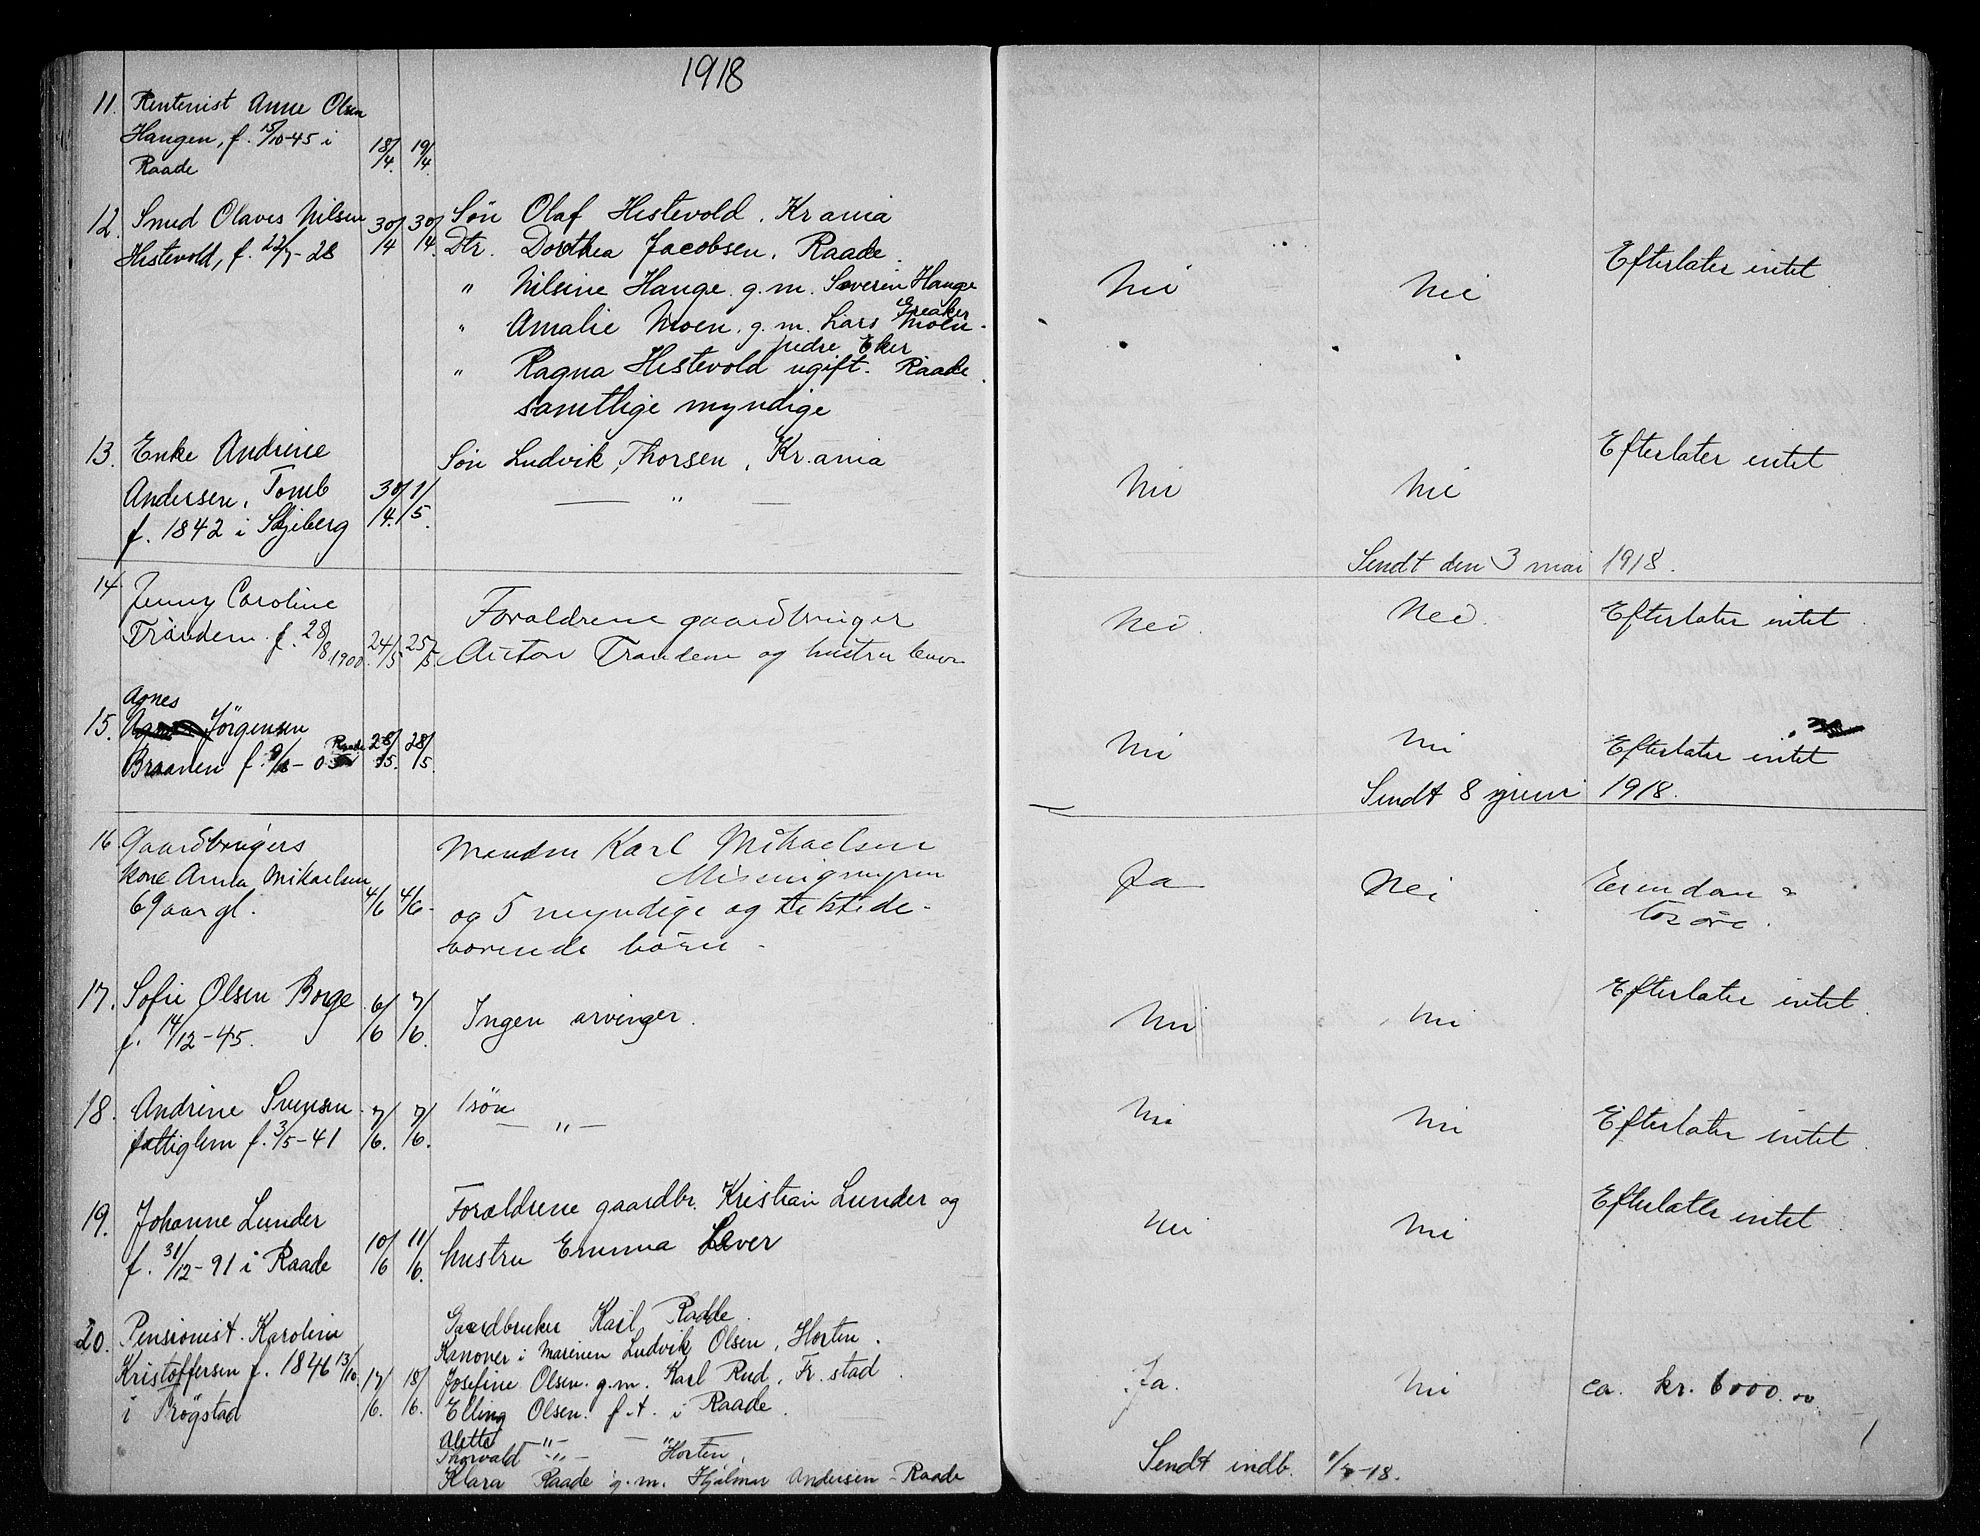 1918
11. Rentenist Anne Olsen
Haugen, f. 15/10-45 i 18/4. 19/4.
Raade
12. Smed Olaves Nilsen 30/4 30/4. Søn Olaf Hestevold, Kr.ania
Hestevold, f. 22/7-28 Dtr. Dorthea Jacobsen, Raade. Nei Nei Efterlater intet
" Nilsine Hauge g.m. Severin Hauge
Greaker
" Amalie Moen, g.m. Lars Moen
Eker
" Ragna Hestevold ugift. Raade.
samtlige myndige
13. Enke Andrine Søn Ludvik Thorsen, Kr.ania Nei Nei Efterlater intet
Andersen, Tomb 30/4. 1/5. — " —
f. 1842 i Skjeberg
Sendt den 3 mai 1918.
14. Jenny Caroline Foraldrene gaardbruger Nei. Nei. Efterlater intet.
Trandem f. 28/8 1900. 24/5 25/5 Anton Trandem og hustru lever
15. Agnes
Jørgensen Nei Nei Efterlater intet
Braanen f. Raade 28/5. 28/5
Sendt 8 juni 1918.
16 Gaardbrugers Manden Karl Mikaelsen
kone Anna Mikaelsen 4/6 4/6- Missingmyren Ja Nei Eiendom &
69 aar gl. og 5 myndige og tilstede- løsøre.
værende børn -
17. Sofie Olsen Borge 6/6 7/6. Ingen arvinger. Nei Nei Efterlater intet.
f. 14/12-45.
18. Andrine Svensen 7/6. 7/6. 1 søn Nei Nei Efterlater intet.
fattiglem f. 3/5-41 — " —
19. Johanne Lunder Forældrene gaardbr. Kristian Lunder og Nei Nei Efterlater intet
f. 31/12-91 i Raade 10/6 11/6. hustru Emma Lever
20. Pensionist Karoline Gaardbruker Karl Raade.
Kristoffersen f. 1846 13/10 Kanoner i Marinen Ludvik Olsen, Horten.
i Trøgstad 17/6. 18/6. Josefine Olsen g.m. Karl Rud, Fr.stad. Ja. Nei ca. kr. 6000.00
Elling Olsen f.t. i Raade.
Alette —"— — "
Thorvald —"— Horten.
Klara Raade g.m. Hjalmar Andersen - Raade
Sendt indb. 1/7-18.